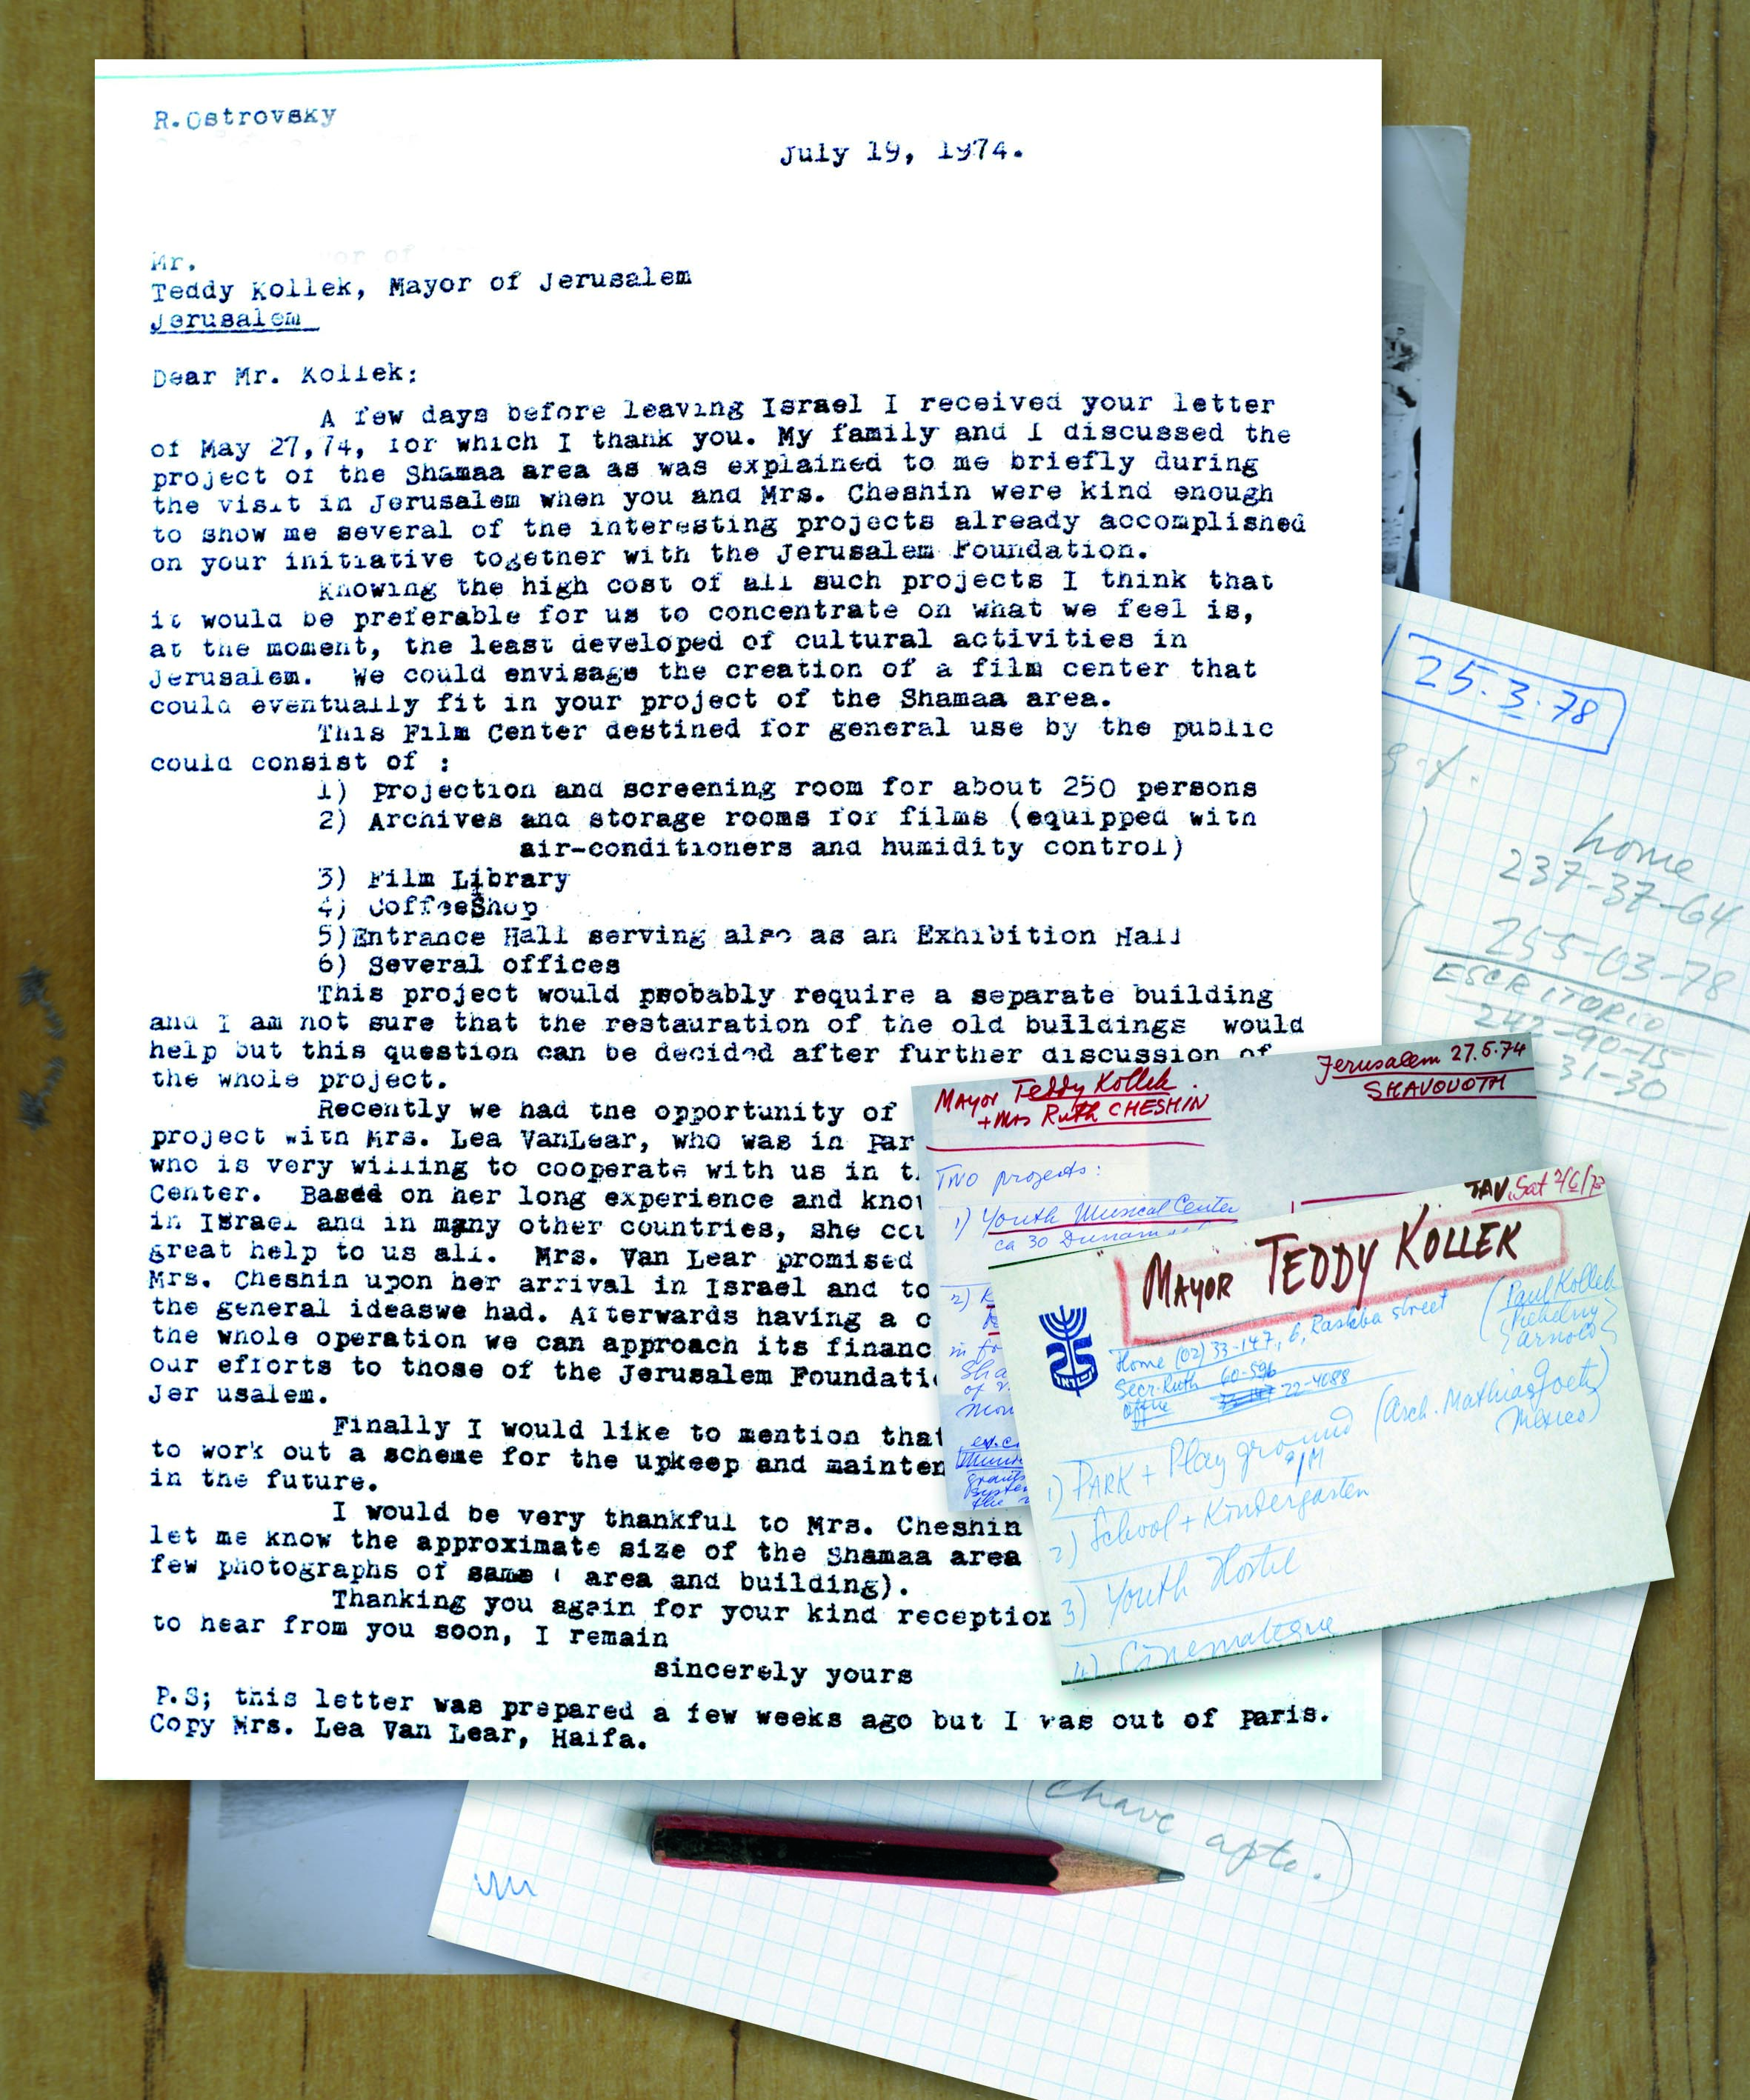 R.Ostrovsky
July 19, 1974.
Mr.
Teddy Kollek, Mayor of Jerusalem
Jerusalem
Dear Mr. Kollek:
A few days before leaving Israel I received your letter
of May 27,74, for which I thank you. My family and I discussed the
project of the Shamaa area as was explained to me briefly during
the visit in Jerusalem when you and Mrs. Cheshin were kind enough
to show me several of the interesting projects already accomplished
on your initiative together with the Jerusalem Foundation.
Knowing the high cost of all such projects I think that
it would be preferable for us to concentrate on what we feel is,
at the moment, the least developed of cultural activities in
Jerusalem. We could envisage the creation of a film center that
could eventually fit in your project of the Shamaa area.
This Film Center destined for general use by the public
could consist of :
1) Projection and screening room for about 250 persons
2) Archives and storage rooms for films (equipped with
air-conditioners and humidity control)
3) Film Library
4) CoffeeShop
5)Entrance Hall serving also as an Exhibition Hall
6) Several offices
This project would probably require a separate building
and I am not sure that the restauration of the old buildings would
help but this question can be decided after further discussion of
the whole project.
Recently we had the opportunity of
project with Mrs. Lea VanLear, who was in Par
who is very willing to cooperate with us in t
Center. Based on her long experience and know
in Israel and in many other countries, she cou
great help to us all. Mrs. Van Lear promised
Mrs. Cheshin upon her arrival in Israel and to
the general ideaswe had. Afterwards having a c
the whole operation we can approach its financ
our efforts to those of the Jerusalem Foundati
Jer usalem.
Finally I would like to mention that
to work out a scheme for the upkeep and mainten
in the future.
I would be very thankful to Mrs. Cheshin
let me know the approximate size of the Shamaa area
few photographs of same ( area and building).
Thanking you again for your kind reception
to hear from you soon, I remain
sincerely yours
P.S; this letter was prepared a few weeks ago but I was out of Paris.
Copy Mrs. Lea Van Lear, Haifa.
25.3.78
home
237-37-64
255-03-78
ESCRITORIO
242-90-15
31-30
Mayor Teddy Kollek
+ Mrs Ruth CHESHIN
Jerusalem 27.5.74
SHAVOUOTH
Two projects:
1) Youth Musical Center
ca 30 Dunam
2)
in fo
Sha
of
grants
system
the
TAV, Sat
MAYOR TEDDY KOLLEK
(Paul Kollek
Arnold
Home (02) 33-147, 6, Rashba street
Secr. Ruth 60-596
office 22-4088
(arch. Mathias Goeritz
Mexico)
1) PARK + Play ground
2) School + Kindergarten
3) Youth Hostel
4) Cinemateque
(chave apto.)